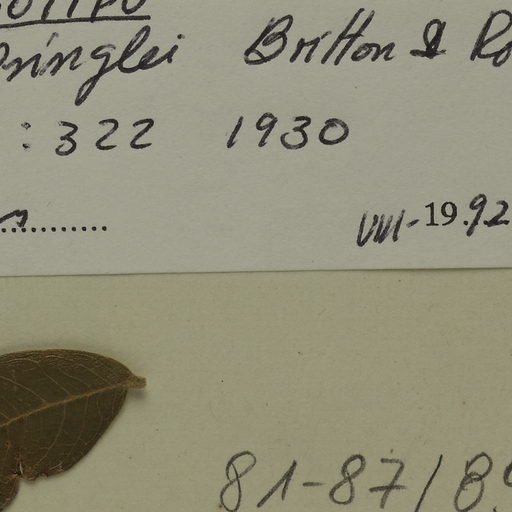 pringlei Britton &
: 322 1930
VIII-19.92
81-87/8